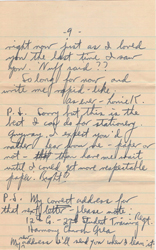 -9-
right now just as I loved
you the last time I saw
you. Nuff said??
So long for now, and
write me rapid-like
as ever - 
P.S. Sorry but this is the
best I can do for stationery
anyway. I expect you'd
rather hear from me - paper or
not - than have me wait
until I could get more respectable
paper. Right?
P.S. My correct address for
this letter - please note -
Harmony Church Area
New address will send you when I learn it